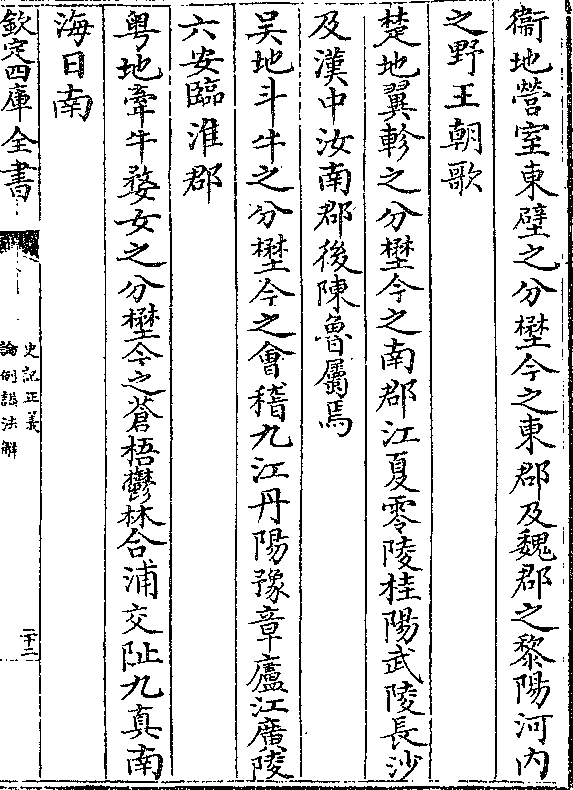 衞地營室東壁之分壄今之東郡及魏郡之黎陽河内
之野王朝歌
楚地翼軫之分壄今之南郡江夏零陵桂陽武陵長沙
及漢中汝南郡後陳魯屬焉
吴地斗牛之分壄今之會稽九江丹陽豫章廬江廣陵
六安臨淮郡
粤地牽牛婺女之分壄今之蒼梧鬱林合浦交阯九真南
海日南
欽定四庫全書
史記正義
論例諡法解
二十二